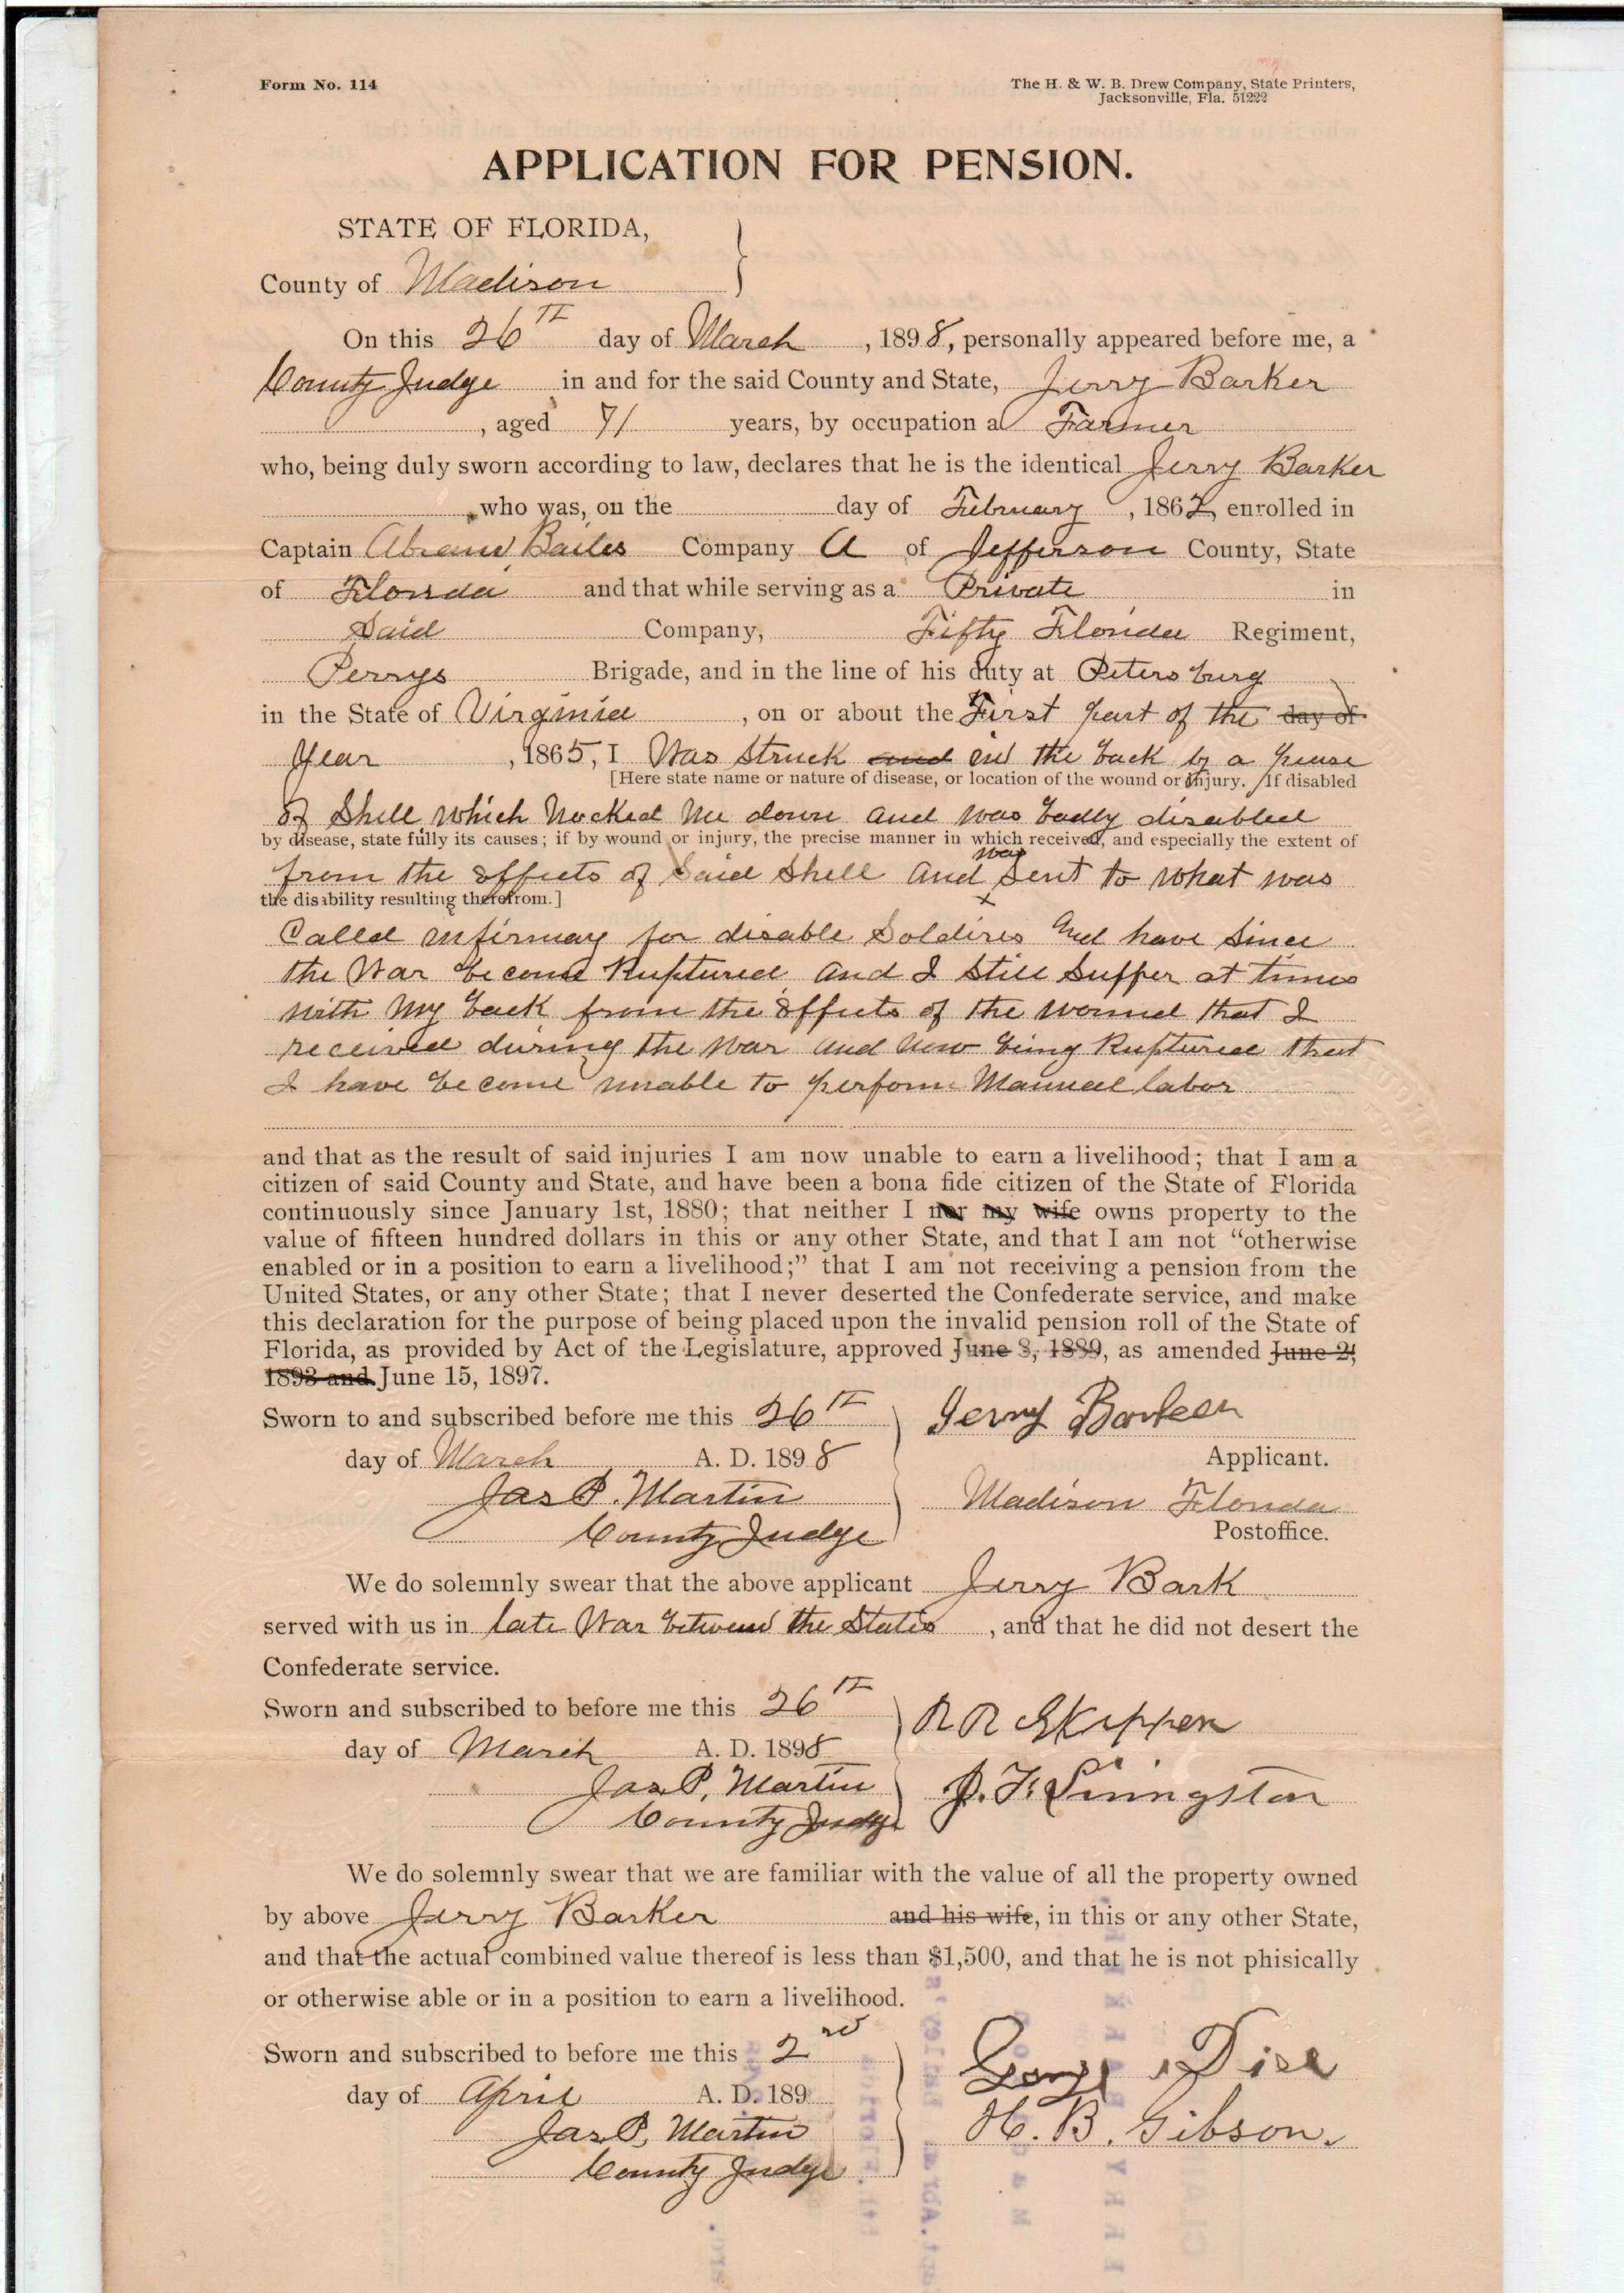 Form No. 114
The H. & W. B. Drew Company, State Printers,
Jacksonville, Fla. 51222
APPLICATION FOR PENSION.
STATE OF FLORIDA,
County of Madison
On this 26TH day of March, 1898, personally appeared before me, a
County Judge in and for the said County and State, Jerry Barker
, aged 71 years, by occupation a Farmer
who, being duly sworn according to law, declares that he is the identical Jerry Barker
who was, on the day of February, 1862, enrolled in
Captain Bailes Company A of Jefferson County, State
of Florida and that while serving as a Private in
Said Company, Fifty Florida Regiment,
Perrys Brigade, and in the line of his duty at Petersburg
in the State of Virginia, on or about the First part of the day of
Year, 1865, I Was Struck and in the back by a
[Here state name or nature of disease, or location of the wound or injury. If disabled
of Shell which Nocked Me down and was badly disabled
by disease, state fully its causes; if by wound or injury, the precise manner in which received, and especially the extent of
from the effects of Said Shell and was Sent to what was
the disability resulting therefrom.]
Called for disable Soldires and have Since
the War become Ruptured and I Still Suffer at times
with My back from the effects of the wound that I
received during the War and now being Ruptured that
I have become unable to perform Manuel labor
and that as the result of said injuries I am now unable to earn a livelihood; that I am a
citizen of said County and State, and have been a bona fide citizen of the State of Florida
continuously since January 1st, 1880; that neither I nor my wife owns property to the
value of fifteen hundred dollars in this or any other State, and that I am not “otherwise
enabled or in a position to earn a livelihood;” that I am not receiving a pension from the
United States, or any other State; that I never deserted the Confederate service, and make
this declaration for the purpose of being placed upon the invalid pension roll of the State of
Florida, as provided by Act of the Legislature, approved June 8, 1889, as amended June 2,
1893 and June 15, 1897.
Sworn to and subscribed before me this 26TH
Jerry Barker
day of March A. D. 1898
Applicant.
Jas P. Martin
Madison Florida
County Judge
Postoffice.
We do solemnly swear that the above applicant Jerry Bark
served with us in late War between the States, and that he did not desert the
Confederate service.
Sworn and subscribed to before me this 26TH
R R Skipper
day of March A. D. 1898
Jas P. Martin
J. F. Livingston
County Judge
We do solemnly swear that we are familiar with the value of all the property owned
by above Jerry Barker and his wife, in this or any other State,
and that the actual combined value thereof is less than $1,500, and that he is not phisically
or otherwise able or in a position to earn a livelihood.
Sworn and subscribed to before me this 2nd
George Dice
day of April A. D. 189
Jas P. Martin
H. B. Gibson.
County Judge